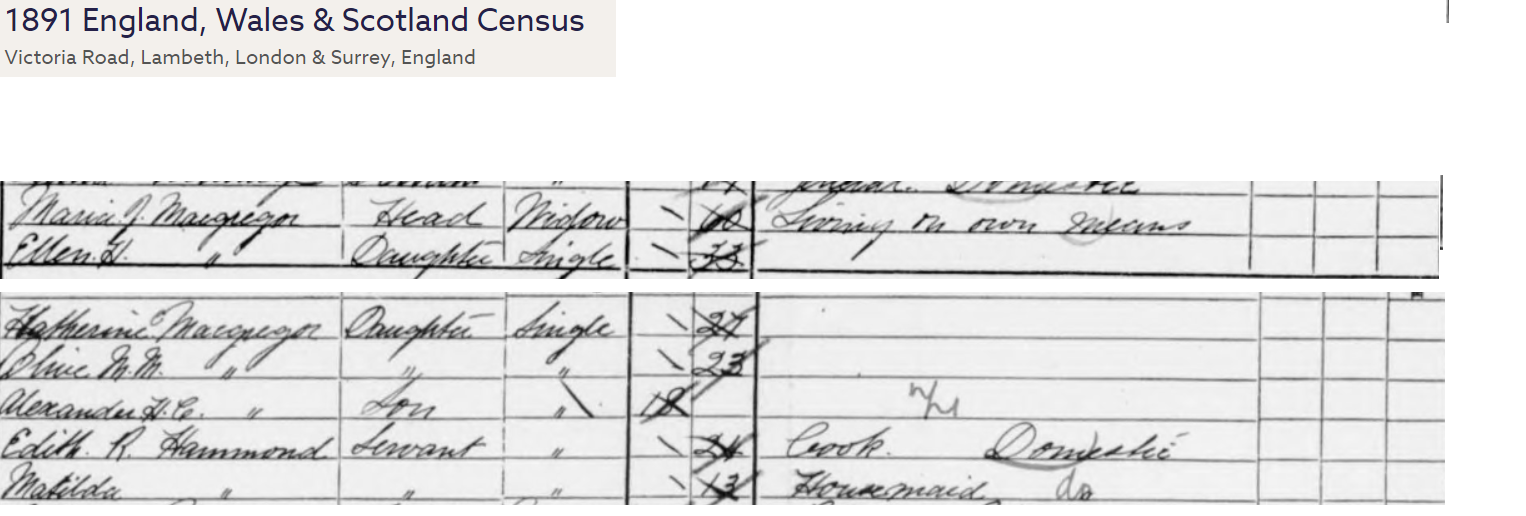 1891 England, Wales & Scotland Census
Victoria Road, Lambeth, London & Surrey, England
General Domestic
Maria J. Macgregor Head Widow 60 Living on own means
Ellen H. " Daughter Single 33
Katherine Macgregor Daughter Single 27
Olive M.M. " " " 23
Alexander H.C. " Son " 18
Edith. R. Hammond Servant " 24 Cook. Domestic
Matilda " " " 13 Housemaid do